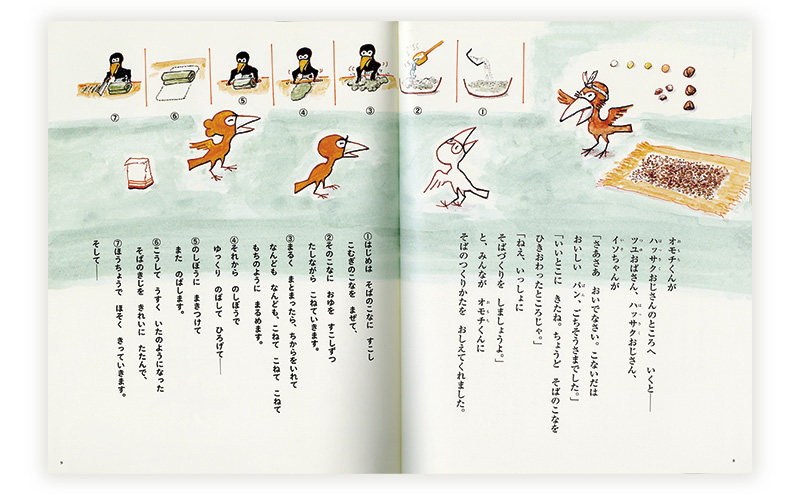 オモチくんが
ハッサクおじさんのところへ いくと――
ツユおばさん、ハッサクおじさん、
イソちゃんが
「さあさあ おいでなさい。こないだは
おいしい パン、ごちそうさまでした。」
「いいとこに きたね。ちょうど そばのこなを
ひきおわったところじゃ。」
「ねえ、いっしょに
そばづくりを しましょうよ。」
と、みんなが オモチくんに
そばのつくりかたを おしえてくれました。
8
①
②
③
④
⑤
⑥
⑦
①はじめは そばのこなに すこし
こむぎのこなを まぜて、
②そのこなに おゆを すこしずつ
たしながら こねていきます。
③まるく まとまったら、ちからをいれて
なんども なんども、こねて こねて こねて
もちのように まるめます。
④それから のしぼうで
ゆっくり のばして ひろげて――
⑤のしぼうに まきつけて
また のばします。
⑥こうして うすく いたのようになった
そばのきじを きれいに たたんで、
⑦ほうちょうで ほそく きっていきます。
そして――
9